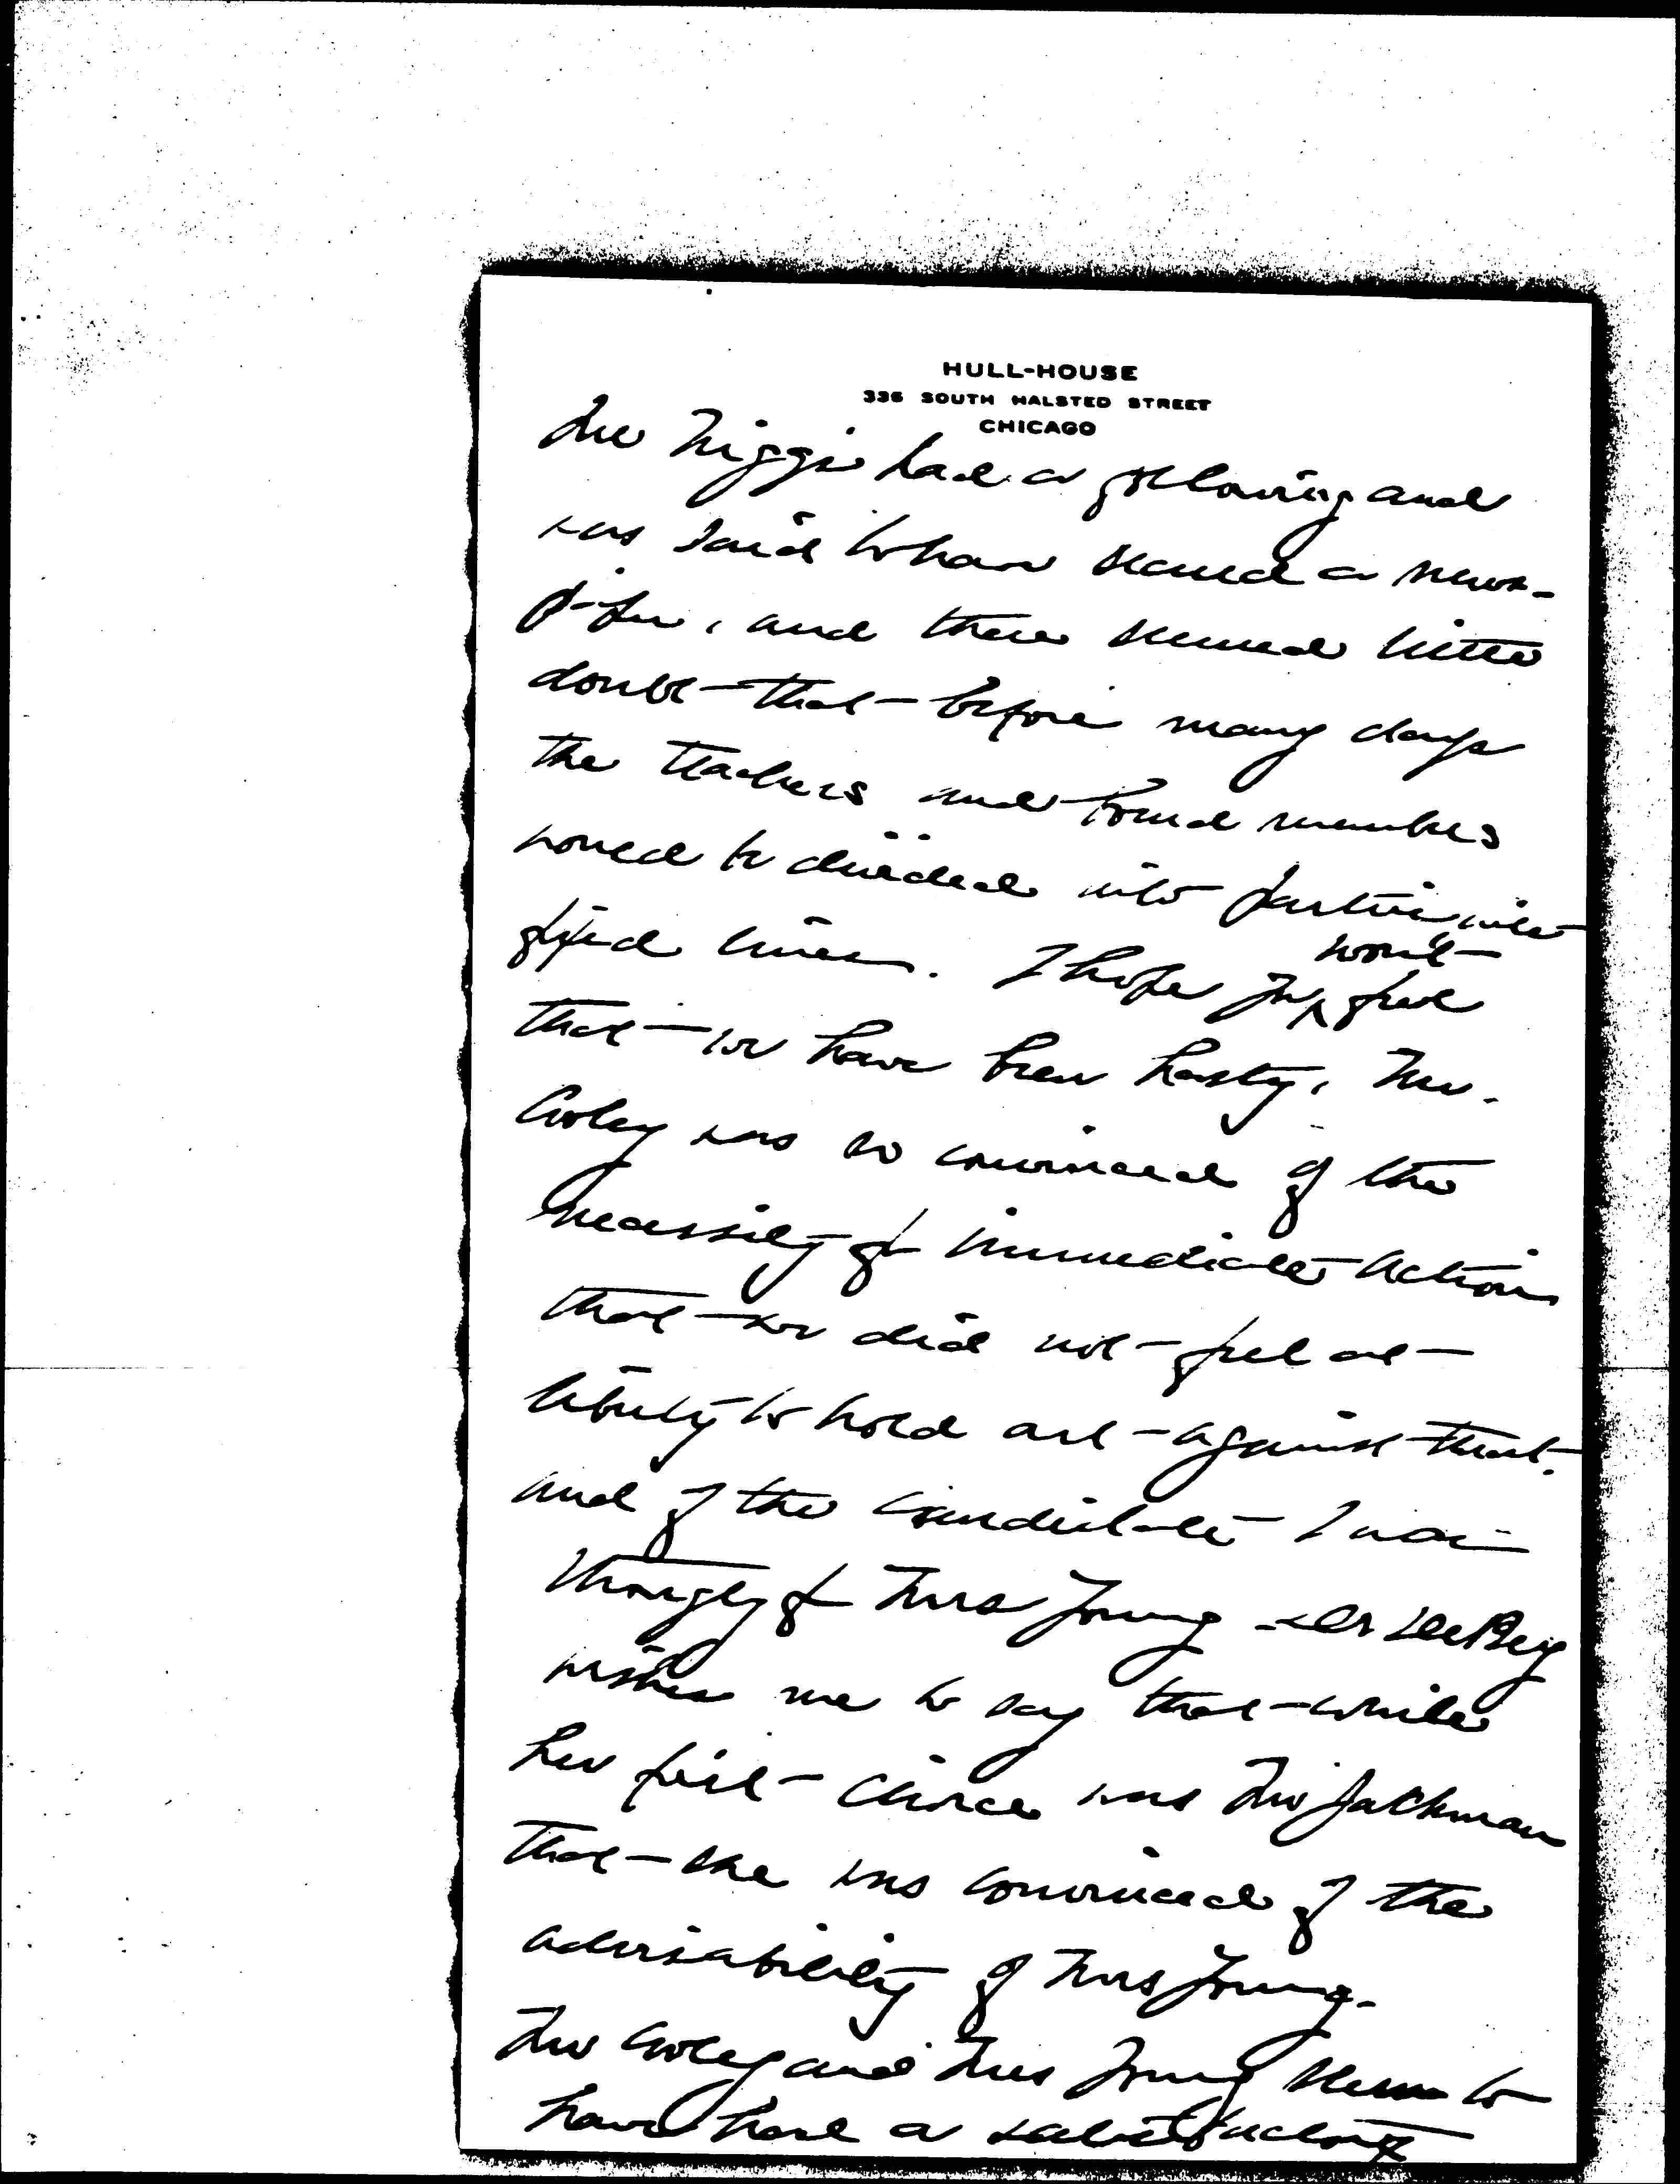 HULL-HOUSE
336 SOUTH HALSTED STREET
CHICAGO
Mr Higgis had a following and
was said to have secured a
and there seemed little
doubt that before many days
the teachers and board members
would be divided into parties with
fixed lines. I hope you won't feel
that we have been hasty, Mr.
Cooley was so convinced of the
necessity of immediate action
that we did not feel at
liberty to hold out against that.
and of the candidates I was in
thought of Mrs Young
wishes me to say that while
her first choice was Mr Jackman
that she was convinced of the
advisability of Mrs Young.
Mr Cooley and Mrs Young seem to
have had a satisfactory